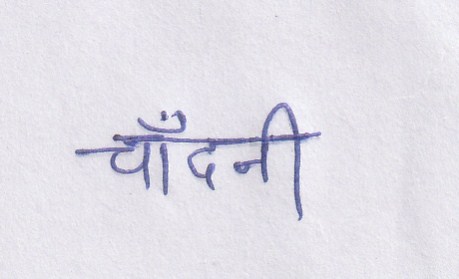 चाँदनी